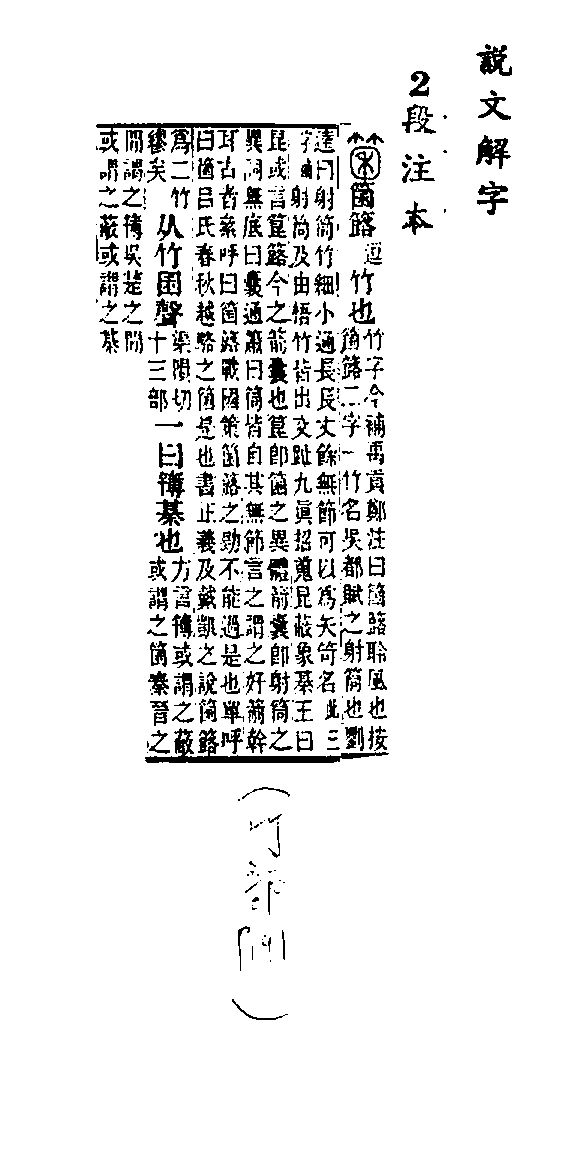 說文解字
2段注本
箘簬逗竹也
竹字今補禹貢鄭注曰箘簬聆風也按
箘簬二字一竹名吳都賦之射筒也劉
逵曰射筒竹細小通長長丈餘無節可以爲矢笴名此三
字射筒及由梧竹皆出交趾九眞招䰟昆蔽象棊王曰
昆或言箟簬今之箭囊也箟卽箘之異體箭囊卽射筒之
異詞無底曰囊通簫曰筒皆自其無節言之謂之好箭幹
耳古者絫呼曰箘簬戰國策箘簬之勁不能過是也單呼
曰箘呂氏春秋越駱之箘是也書正義及戴凱之說箘簬
爲二竹
繆矣
从竹囷聲
渠隕切
十三部
一曰簿棊也
方言簿或謂之蔽
或謂之箘秦晉之
閒謂之簿吳楚之閒
或謂之蔽或謂之棊
(竹部)